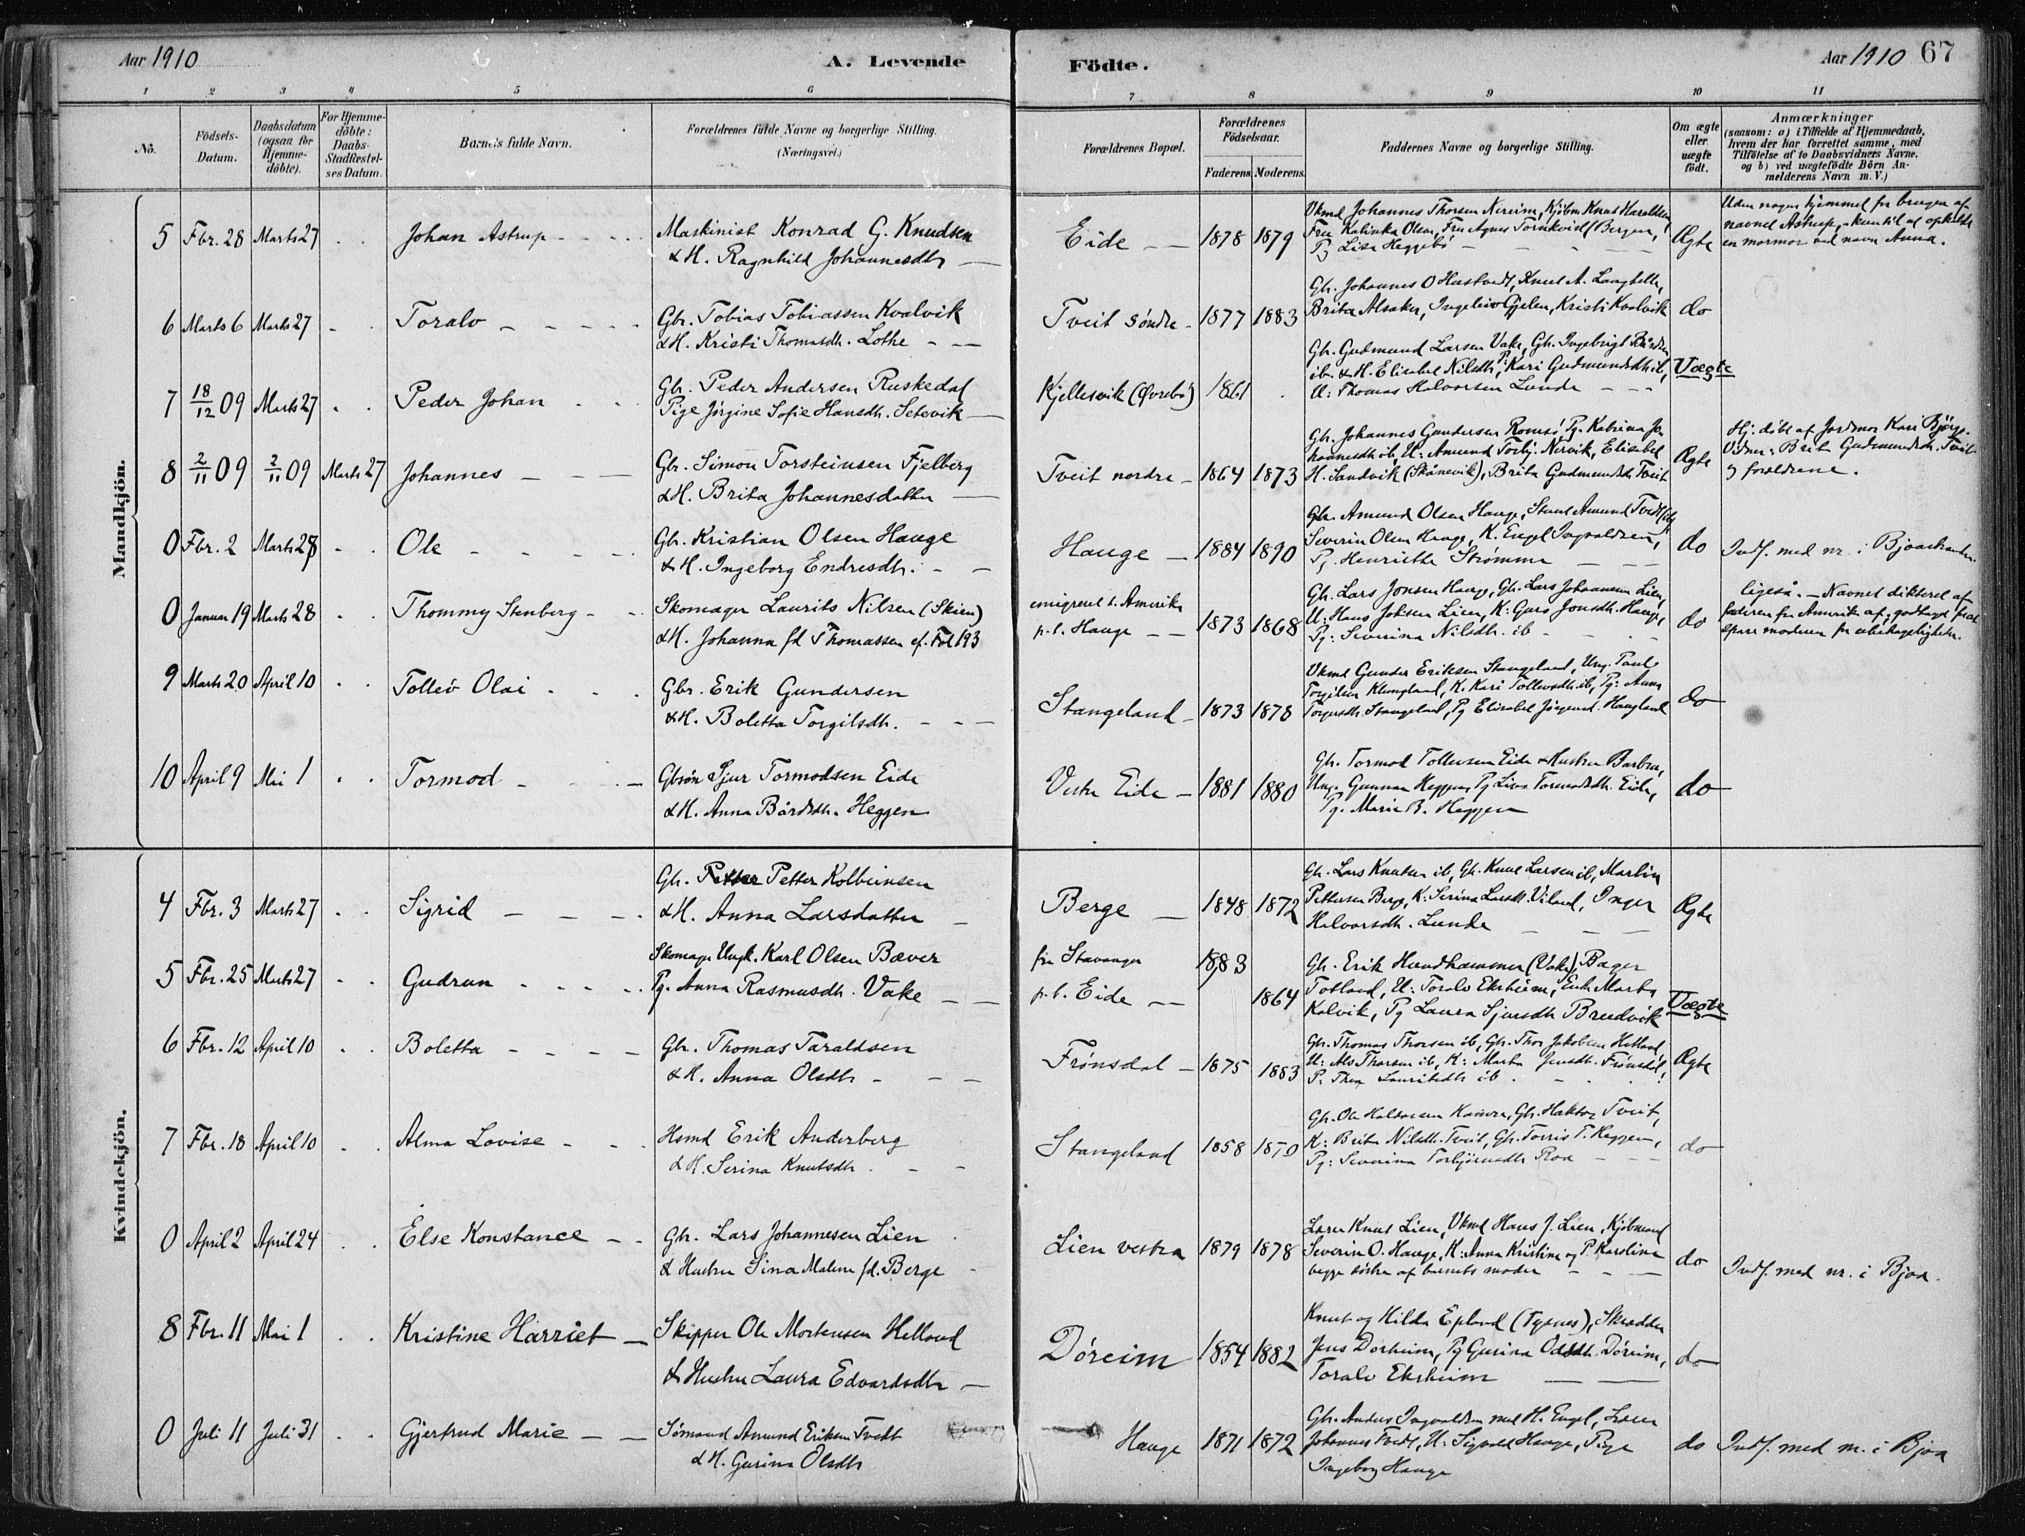 Aar 1910
A. Levende
Födte.
Aar 1910 67
1 2 3 4 5 6 7 8 9 10 11
No.
Födsels-Datum.
Daabsdatum (ogsaa for Hjemme-döbte).
For Hjemme-döbte: Daabs-Stadfæstel-ses Datum.
Barnets fulde Navn.
Forældrenes fulde Navne og borgerlige Stilling.
(Næringsvei.)
Forældrenes Bopæl.
Forældrenes Födselsaar.
Faderens. Moderens.
Faddernes Navne og borgerlige Stilling.
Om ægte eller uægte födt.
Anmærkninger
(saasom: a) i Tilfælde af Hjemmedaab, hvem der har forrettet samme, med Tilföielse af to Daabsvidners Navne. og b) ved uægtefödte Börn An-melderens Navn m. V.)
Mandkjön.
5 Fbr. 28 Marts 27 Johan Astrup Maskinist Konrad G. Knudsen
& H. Ragnhild Johannesdtr
Eide 1878 1879
Vkmd Johannes Thorsen Nereim, Kjøbm Knut Haraldsen,
Fru Kalinka Olsen, Fru Agnes Tornkvist (Bergen,
Pg Lisa Heggebø
Ægte
Uden nogen hjemmel for brugen af
navnet Astrup, kun til at opkalde
en mormor ved navn Anna.
6 Marts 6 Marts 27 Toralv Gbr. Tobias Tobiassen Kvalvik
& H. Kristi Thomasdtr. Lothe
Tveit søndre 1877 1883
Gbr. Johannes O Hustvedt, Knut A. Langhelle,
Brita Alsaker, Ingeleiv Gjelen, Kristi Kvalvik
do
7 18/12 09 Marts 27 Peder Johan Gbr. Peder Andersen Ruskedal
Pige Jørgine Sofie Hansdtr. Setevik
Kjellesvik (Øvrebø) 1861
Gbr. Gudmund Larsen Vake, Gbr. Ingebrigt Bårdsen
ib. & H. Elisabet Nilsdtr, P. Kari Gudmundsdtr ib,
U: Thomas Halvorsen Lunde
Uægte
8 2/11 09 2/11 09 Marts 27 Johannes Gbr. Simon Torsteinsen Fjelberg
& H. Brita Johannesdatter
Tveit nordre 1864 1873
Gbr. Johannes Gundersen Romsø, Pg. Katrina Jo-
hannesdtr ib, U: Amund Torbj. Nervik, Elisabet
H. Sandvik (Skånevik), Brita Gudmundsdtr Tveit
Ægte
Hj. døbt af Jordmor Kari Bjørg.
Vidner: Brit Gudmundsdtr. Tveit
og forældrene.
0 Fbr. 2 Marts 28 Ole Gbr. Kristian Olsen Hauge
& H. Ingeborg Endresdtr.
Hauge 1884 1890
Gbr. Amund Olsen Hauge, Amund Tvedt
Severin Olsen Hauge, K. Engel Ingvaldsen,
Pg. Henriette Strømme
do
Indf. med nr. i Bjoa
0 Januar 19 Marts 28 Thommy Stenberg Skomager Laurits Nilsen (Skien)
& H. Johanna fd Thomassen cf. Fol 193
emigreret t. Amerika
p.t. Hauge 1873 1868
Gbr. Lars Jonsen Hauge, Gbr. Lars Johannesen Lien,
U: Hans Johsen Lien, K: Guro Jonsdtr. Hauge,
Pg: Severina Nilsdtr. ib
do
ligeså. – Navnet dikteret af
faderen fra Amerika af; godtaget for at
spare moderen for ubehageligheder.
9 Marts 20 April 10 Tollev Olai Gbr. Erik Gundersen
& H. Boletta Torgilsdtr.
Stangeland 1873 1878
Vkmd Gunder Eriksen Stangeland, Ung. Paul
Torgilsen Klungland, K. Kari Tollevsdtr. ib, Pg: Anna
Torgersdtr. Stangeland, Pg Elisabet Jørgensd. Haugland
do
10 April 9 Mai 1 Tormod Gbsøn Sjur Tormodsen Eide
& H. Anna Bårdsdtr. Heggen
Vestre Eide 1881 1880
Gbr. Tormod Tollevsen Eide & Hustru Barbra,
Ung. Gunnar Heggen, Pg Liva Tormodsdtr. Eide,
Pg. Marie B. Heggen
do
Kvindekjön.
4 Fbr. 3 Marts 27 Sigrid Gbr. Petter Kolbeinsen
& H. Anna Larsdatter
Berge 1848 1872
Gbr. Lars Knutsen ib, Gbr. Knut Larsen ib, Martin
Pettersen Berg, K: Serina Larsdtr. Viland, Inger
Halvorsdtr. Lunde
Ægte
5 Fbr. 25 Marts 27 Gudrun Skomager Ungk. Karl Olsen Bæver
Pg. Anna Rasmusdtr. Vake
fra Stavanger 1883
p.t. Eide 1864
Gbr. Erik Hundhammer (Vake), Bager
Totland, U: Toralv Ekrheim, Enke Marta
Kalvik, Pg Laura Sjursdtr Brudvik
Uægte
6 Fbr. 12 April 10 Boletta Gbr. Thomas Taraldsen
& H. Anna Olsdtr
Frønsdal 1875 1883
Gbr. Thomas Thorsen ib, Gbr. Thor Jakobsen Hetland,
U: Als Thorsen ib, K: Marta Jensdtr. Frønsdal,
P: Thea Lauritsdtr ib.
Ægte
7 Fbr. 18 April 10 Alma Lovise Hsmd Erik Anderberg
& H. Serina Knutsdtr.
Stangeland 1858 1870
Gbr. Ole Halvorsen Kamre, Gbr. Haktor Tveit,
K: Brita Nilsdtr. Tveit, Gbr. Torris T. Heggen,
Pg: Severina Torbjørnsdtr Roa
do
0 April 2 April 24 Else Konstance Gbr. Lars Johannesen Lien
& Hustru Sina Malene fd. Berge
Lien vestra 1879 1878
Lærer Knut Lien, Vkmd Hans J. Lien, Kjøbmand
Severin O. Hauge, K: Anna Kristine og P. Karolina
begge søstre af barnets moder
do
Indf. med nr. i Bjoa.
8 Fbr. 11 Mai 1 Kristine Harriet Skipper Ole Mortensen Helland
& Hustru Laura Edvardsdtr
Døreim 1854 1882
Knut og Hilda Epland (Tysnes), Skrædder
Jens Dørheim, Pg Gurina Oddsdtr. Døreim,
Toralv Ekrheim
do
0 Juli 11 Juli 31 Gjertrud Marie Sømand Amund Eriksen Tvedt
& H. Gurina Olsdtr
Hauge 1871 1872
Gbr. Anders Ingvaldsen med H. Engel, Lærer
Johannes Tvedt, U: Sigvald Hauge, Pige
Ingeborg Hauge
do
Indf. med nr. i Bjoa